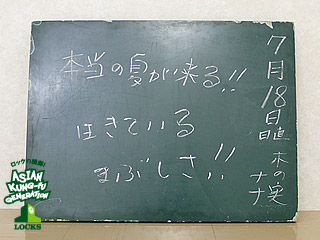 本当の夏が来る!!
生きている
まぶしさ!!
7月18日
日直 木の実ナナ
ロックの綺羅星
ASIAN
KUNG-FU
GENERATION
LOCKS